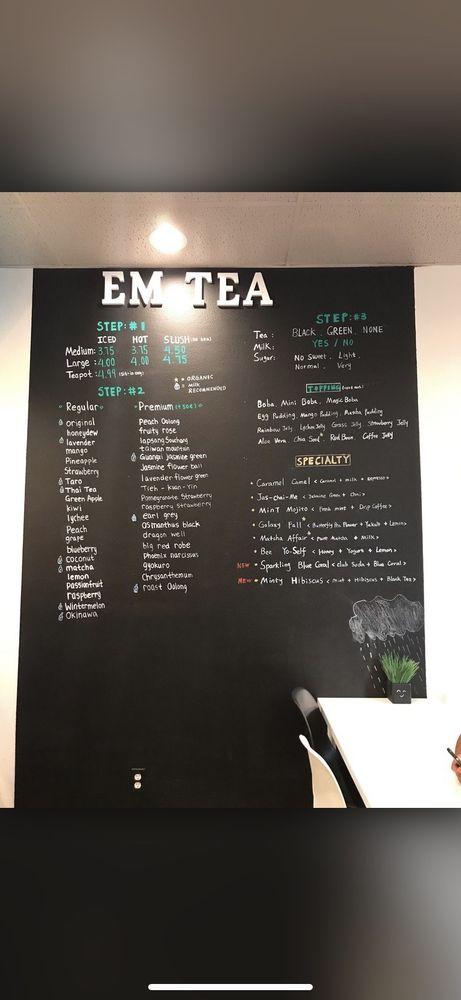 EM TEA
STEP:#1
ICED HOT SLUSH
Medium: 3.75 3.75 4.50
Large: 4.00 4.00 4.75
Teapot: 4.99
= ORGANIC
= Milk
RECOMMENDED
STEP:#2
Regular
original
honeydew
lavender
mango
Pineapple
Strawberry
Taro
Thai Tea
Green Apple
kiwi
lychee
Peach
grape
blueberry
coconut
matcha
lemon
Passionfruit
raspberry
Wintermelon
Okinawa
Premium (+50¢)
Peach Oolong
fruity rose
lapsang Souchong
taiwan mountain
Guangxi Jasmine green
Jasmine flower ball
lavender flower green
Tieh - Kuan - Yin
Pomegranate Strawberry
raspberry Strawberry
earl grey
Osmanthus black
dragon well
big red robe
Phoenix narcissus
gyokuro
Chrysanthemum
roast Oolong
STEP:#3
Tea: BLACK. GREEN. NONE
Milk: YES / NO
Sugar: No Sweet. Light.
Normal. Very
TOPPING
Boba. Mini Boba. Magic Boba
Egg Pudding. Mango Pudding. Matcha Pudding
Rainbow Jelly. Lychee Jelly. Grass Jelly. Strawberry Jelly
Aloe Vera. Chia Seed. Red Bean. Coffee Jelly
SPECIALTY
Caramel Camel < Caramel + milk + espresso >
Jas-chai-Me < Jasmine Green + Chai >
Mint Mojito < Fresh mint + Drip Coffee >
Galaxy Fall < Butterfly Pea Flower + Yakult + Lemon >
Matcha Affair < Pure Matcha + Milk >
Bee Yo-Self < Honey + Yogurt + Lemon >
NEW Sparkling Blue Coral < Club Soda + Blue Coral >
NEW Minty Hibiscus < mint + Hibiscus + Black Tea >